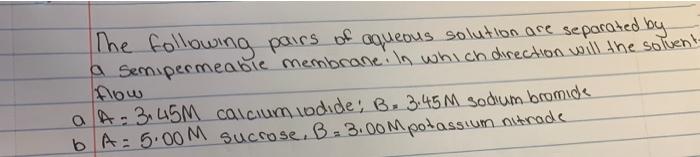 The following pairs of aqueous solution are separated by
a semipermeable membrane. In which direction will the solvent
flow
a A = 3.45M calcium iodide; B = 3.45M sodium bromide
b A = 5.00M sucrose, B = 3.00M potassium nitrade